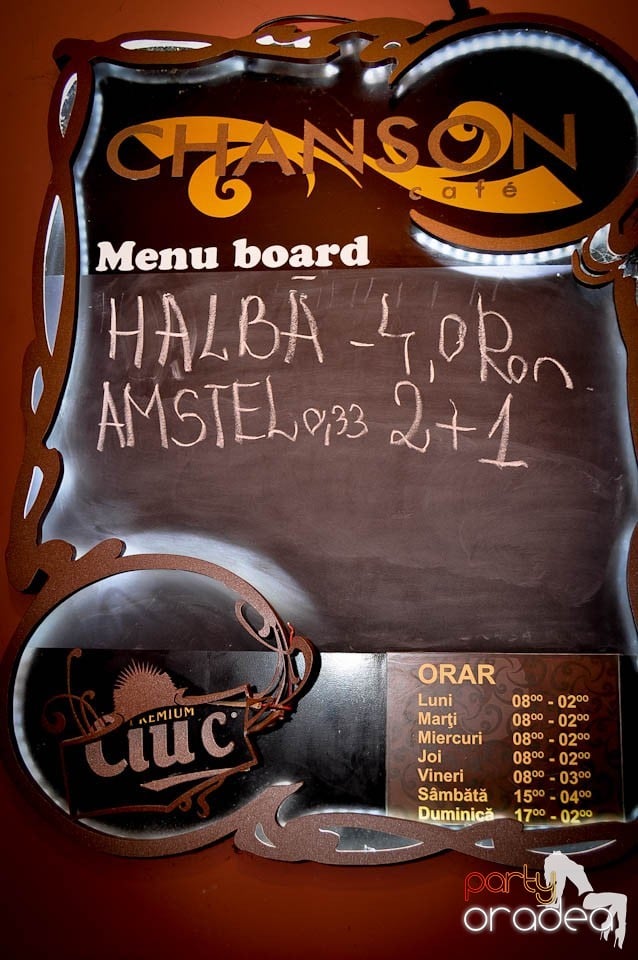 CHANSON
café
Menu board
HALBĂ - 4,0 Ron
AMSTEL 0,33 2+1
PREMIUM
Ciuc
ORAR
Luni 08⁰⁰ - 02⁰⁰
Marţi 08⁰⁰ - 02⁰⁰
Miercuri 08⁰⁰ - 02⁰⁰
Joi 08⁰⁰ - 02⁰⁰
Vineri 08⁰⁰ - 03⁰⁰
Sâmbătă 15⁰⁰ - 04⁰⁰
Duminică 17⁰⁰ - 02⁰⁰
party
oradea